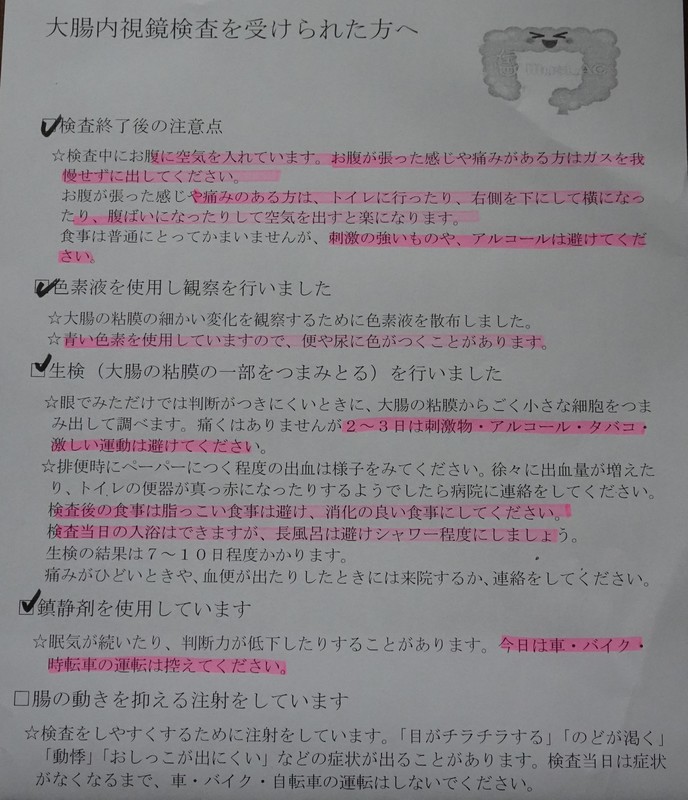 大腸内視鏡検査を受けられた方へ
☑検査終了後の注意点
☆検査中にお腹に空気を入れています。お腹が張った感じや痛みがある方はガスを我
慢せずに出してください。
お腹が張った感じや痛みのある方は、トイレに行ったり、右側を下にして横になっ
たり、腹ばいになったりして空気を出すと楽になります。
食事は普通にとってかまいませんが、刺激の強いものや、アルコールは避けてくだ
さい。
☑色素液を使用し観察を行いました
☆大腸の粘膜の細かい変化を観察するために色素液を散布しました。
☆青い色素を使用していますので、便や尿に色がつくことがあります。
☑生検（大腸の粘膜の一部をつまみとる）を行いました
☆眼でみただけでは判断がつきにくいときに、大腸の粘膜からごく小さな細胞をつま
み出して調べます。痛くはありませんが２～３日は刺激物・アルコール・タバコ・
激しい運動は避けてください。
☆排便時にペーパーにつく程度の出血は様子をみてください。徐々に出血量が増えた
り、トイレの便器が真っ赤になったりするようでしたら病院に連絡をしてください。
検査後の食事は脂っこい食事は避け、消化の良い食事にしてください。
検査当日の入浴はできますが、長風呂は避けシャワー程度にしましょう。
生検の結果は７～１０日程度かかります。
痛みがひどいときや、血便が出たりしたときには来院するか、連絡をしてください。
☑鎮静剤を使用しています
☆眠気が続いたり、判断力が低下したりすることがあります。今日は車・バイク・
時転車の運転は控えてください。
□腸の動きを抑える注射をしています
☆検査をしやすくするために注射をしています。「目がチラチラする」「のどが渇く」
「動悸」「おしっこが出にくい」などの症状が出ることがあります。検査当日は症状
がなくなるまで、車・バイク・自転車の運転はしないでください。